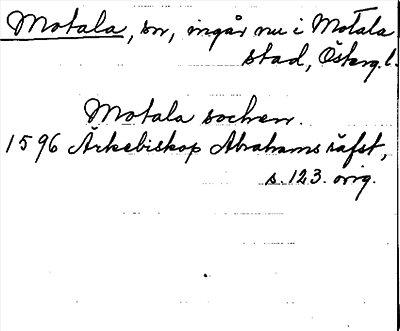 Motala, sn, ingår nu i Motala
stad, Österg. l.
Motala sochen.
1596 Ärkebiskop Abrahams räfst,
s. 123. orig.